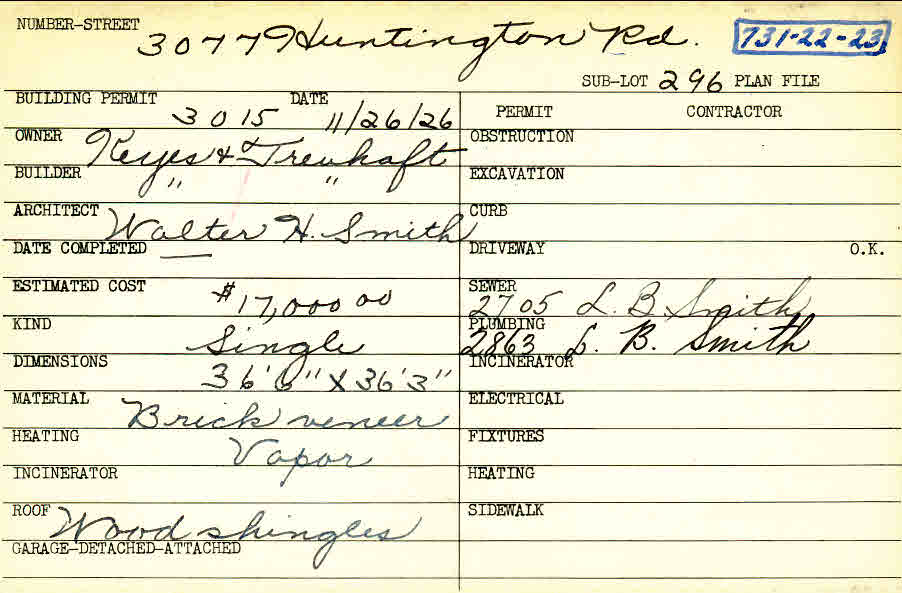 NUMBER-STREET 3077 Huntington Rd. 731-22-23
SUB-LOT 296 PLAN FILE
BUILDING PERMIT 3015 DATE 11/26/26 PERMIT CONTRACTOR
OWNER Keyes & Treuhaft OBSTRUCTION
BUILDER " " EXCAVATION
ARCHITECT Walter H. Smith CURB
DATE COMPLETED — DRIVEWAY O.K.
ESTIMATED COST $17,000 00 SEWER 2705 L. B. Smith
KIND Single PLUMBING 2863 L. B. Smith
DIMENSIONS 36'6" X 36'3" INCINERATOR
MATERIAL Brick veneer ELECTRICAL
HEATING Vapor FIXTURES
INCINERATOR HEATING
ROOF Wood shingles SIDEWALK
GARAGE-DETACHED-ATTACHED